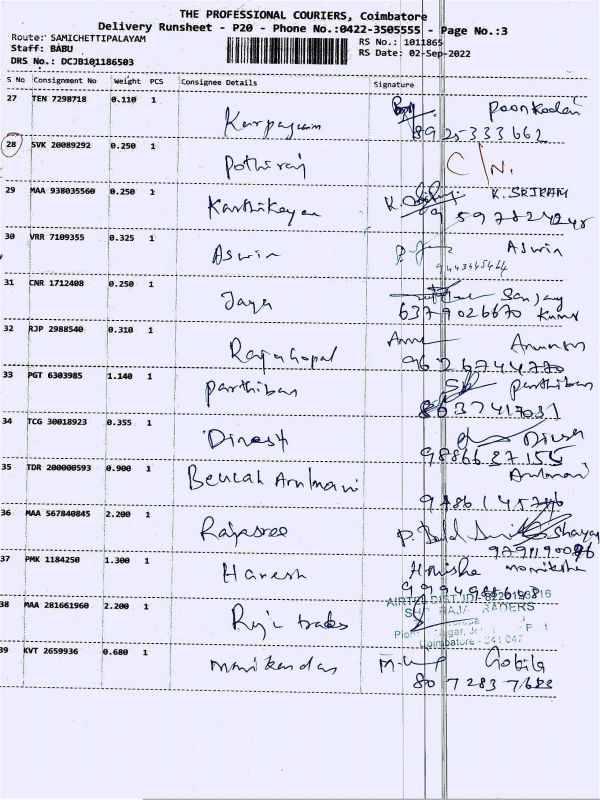 THE PROFESSIONAL COURIERS, Coimbatore
Delivery Runsheet - P20 - Phone No.:0422-3505555 - Page No.:3
Route: SAMICHETTIPALAYAM RS No.: 1011865
Staff: BABU RS Date: 02-Sep-2022
DRS No.: DCJB101186503
S No Consignment No Weight PCS Consignee Details Signature
27 TEN 7298718 0.110 1
Karpagam Poonkodai
8925333662
28 SVK 20089292 0.250 1
Pothiraj C/N.
29 MAA 938035560 0.250 1
Karthikeyan K. K. SRIRAM
30 VRR 7109355 0.325 1
Aswin Aswin
31 CNR 1712408 0.250 1
Jaya Sanjay
6379026670 Kumar
32 RJP 2988540 0.310 1
Rajagopal
9626744770
33 PGT 6303985 1.140 1
Parthiban Parthiban
8037417031
34 TCG 30018923 0.355 1
Dinesh
9886637155
35 TDR 200000593 0.900 1
Beulah Arulmani Arulmani
36 MAA 567840845 2.200 1
Rajasree
37 PMK 1184250 1.300 1
Haresh
38 MAA 281661960 2.200 1
Raji trades
AIRTEL DIST.
39 KVT 2659936 0.680 1
Manikandan Gobila